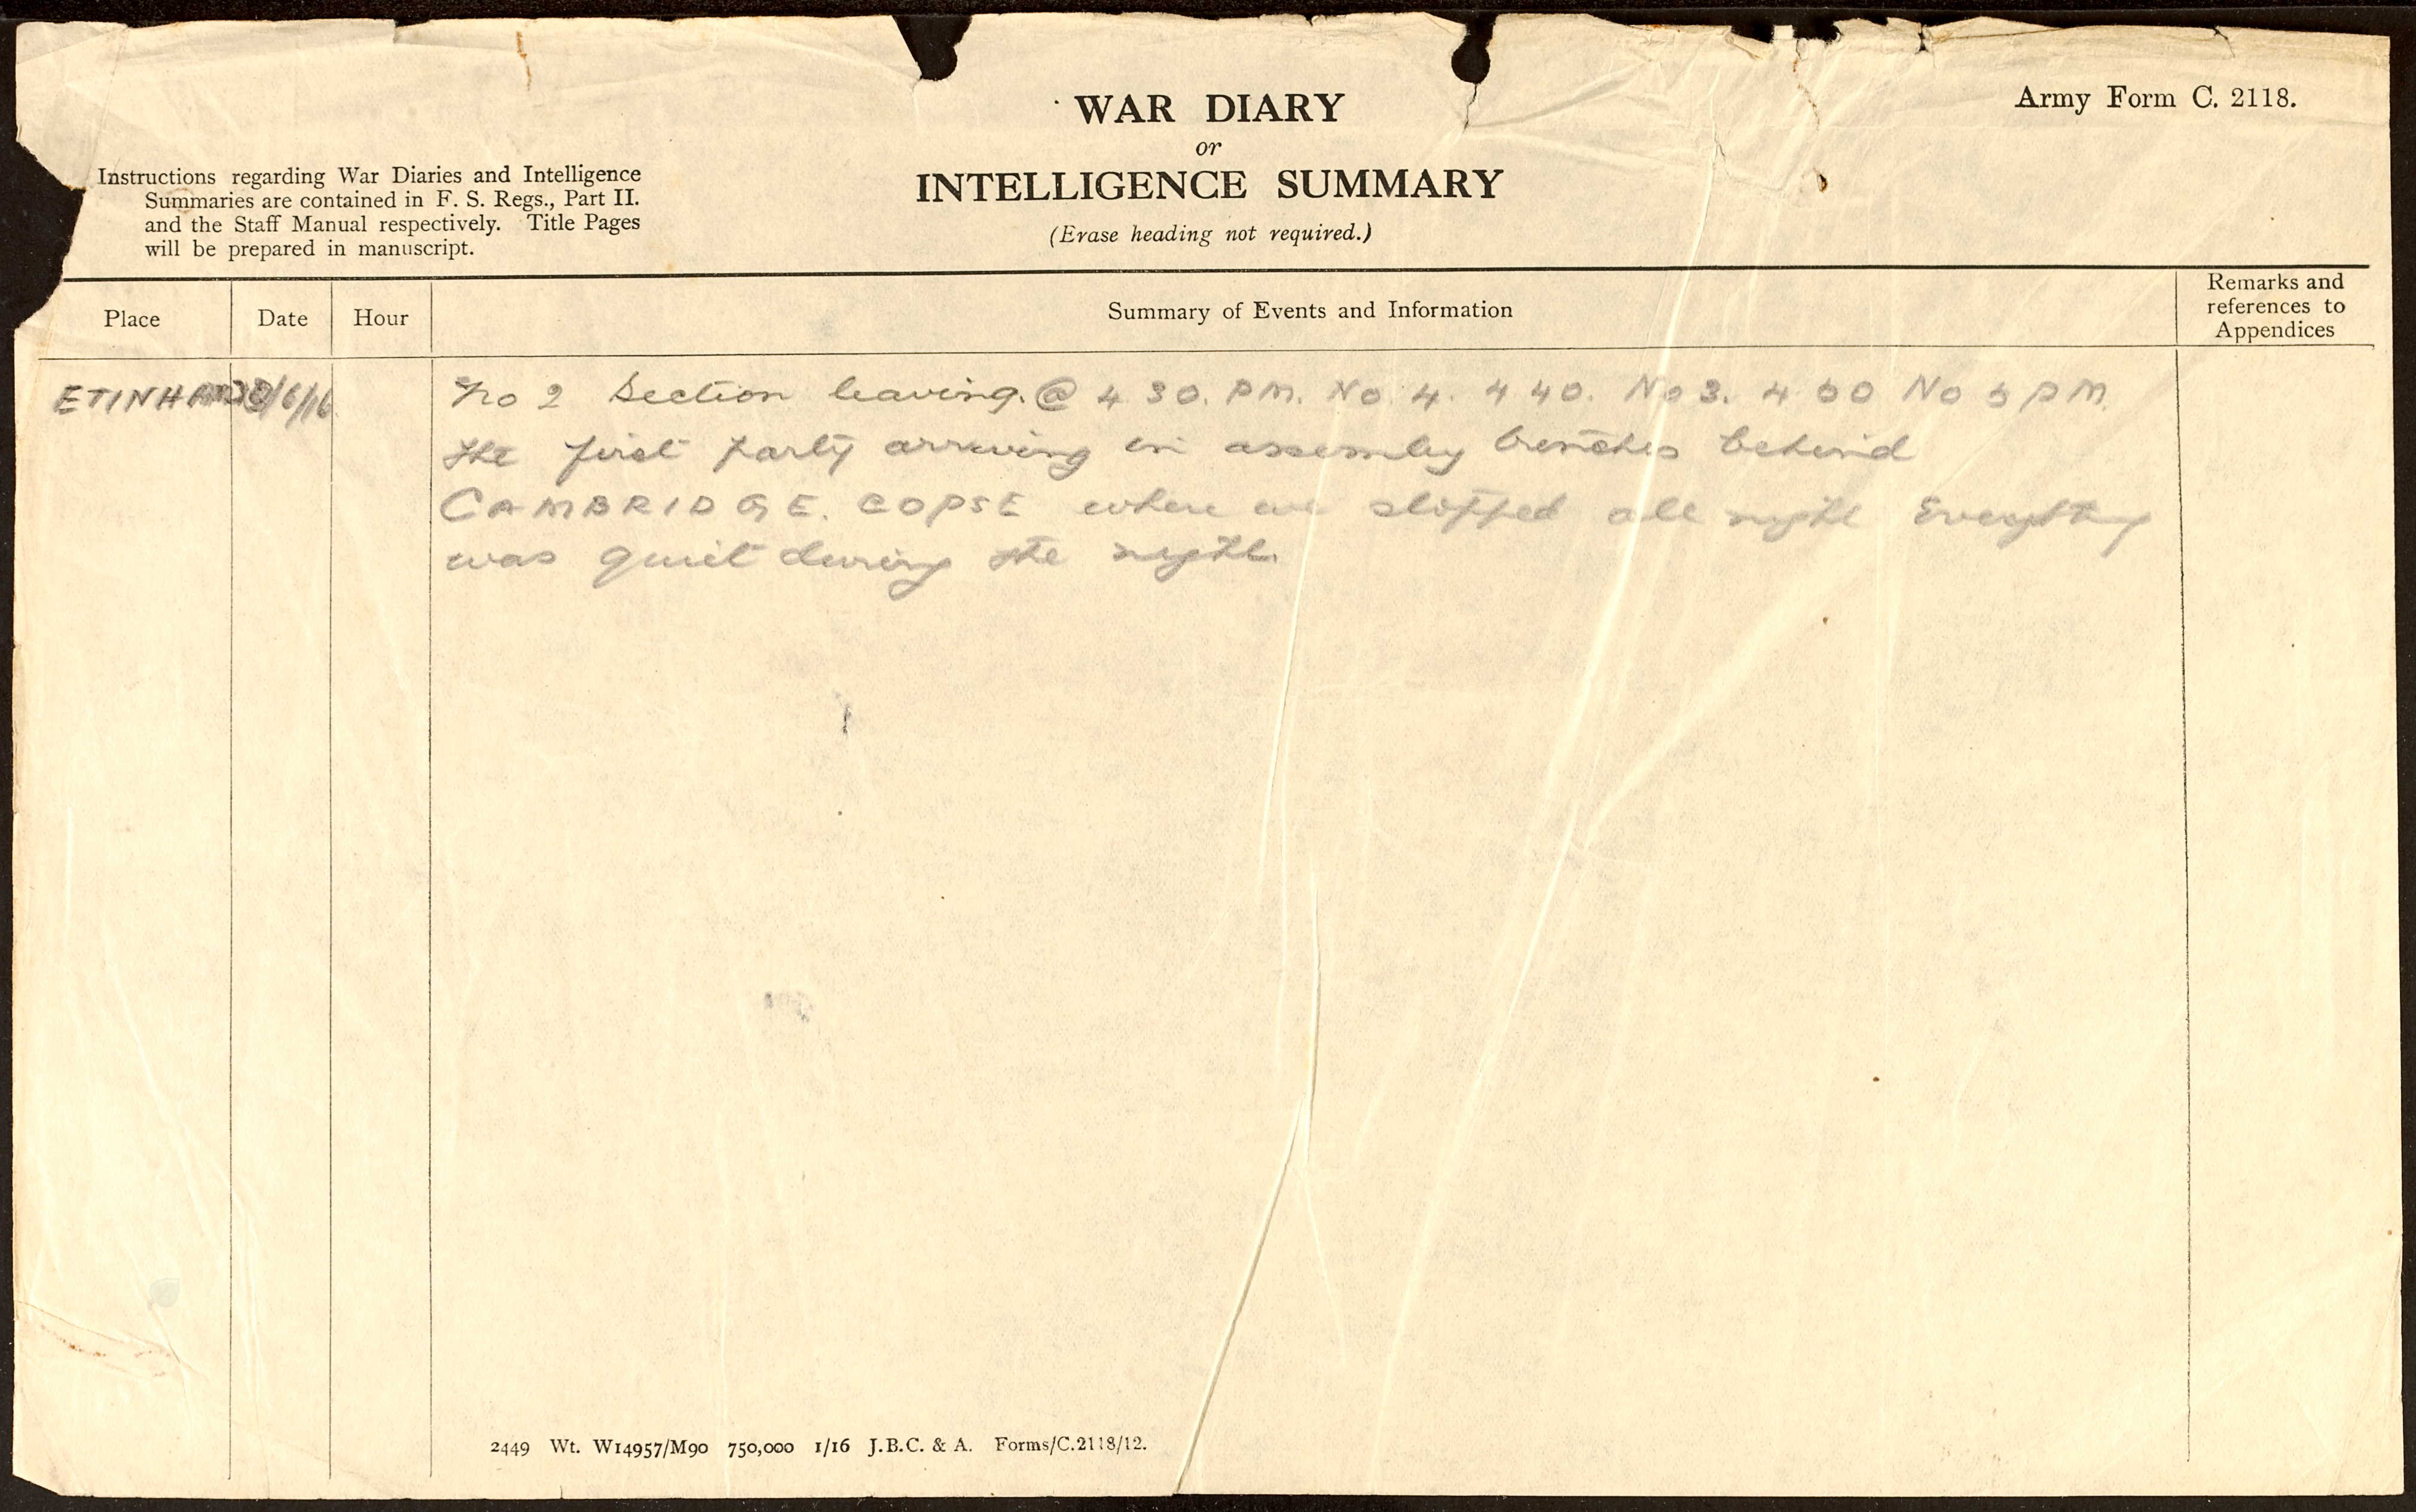 WAR DIARY
or
INTELLIGENCE SUMMARY
(Erase heading not required.)
Army Form C. 2118.
Instructions regarding War Diaries and Intelligence
Summaries are contained in F. S. Regs., Part II.
and the Staff Manual respectively. Title Pages
will be prepared in manuscript.
Place
Date
Hour
Summary of Events and Information
Remarks and
references to
Appendices
/6/16
No 2 Section leaving. @ 4 30. P.M. No. 4. 4 40. No 3. 4 50 No 5 P.M.
the first party arriving in assembly trenches behind
CAMBRIDGE. COPSE where we stopped all night Everything
was quiet during the night.
2449 Wt. W14957/M90 750,000 1/16 J.B.C. & A. Forms/C.2118/12.